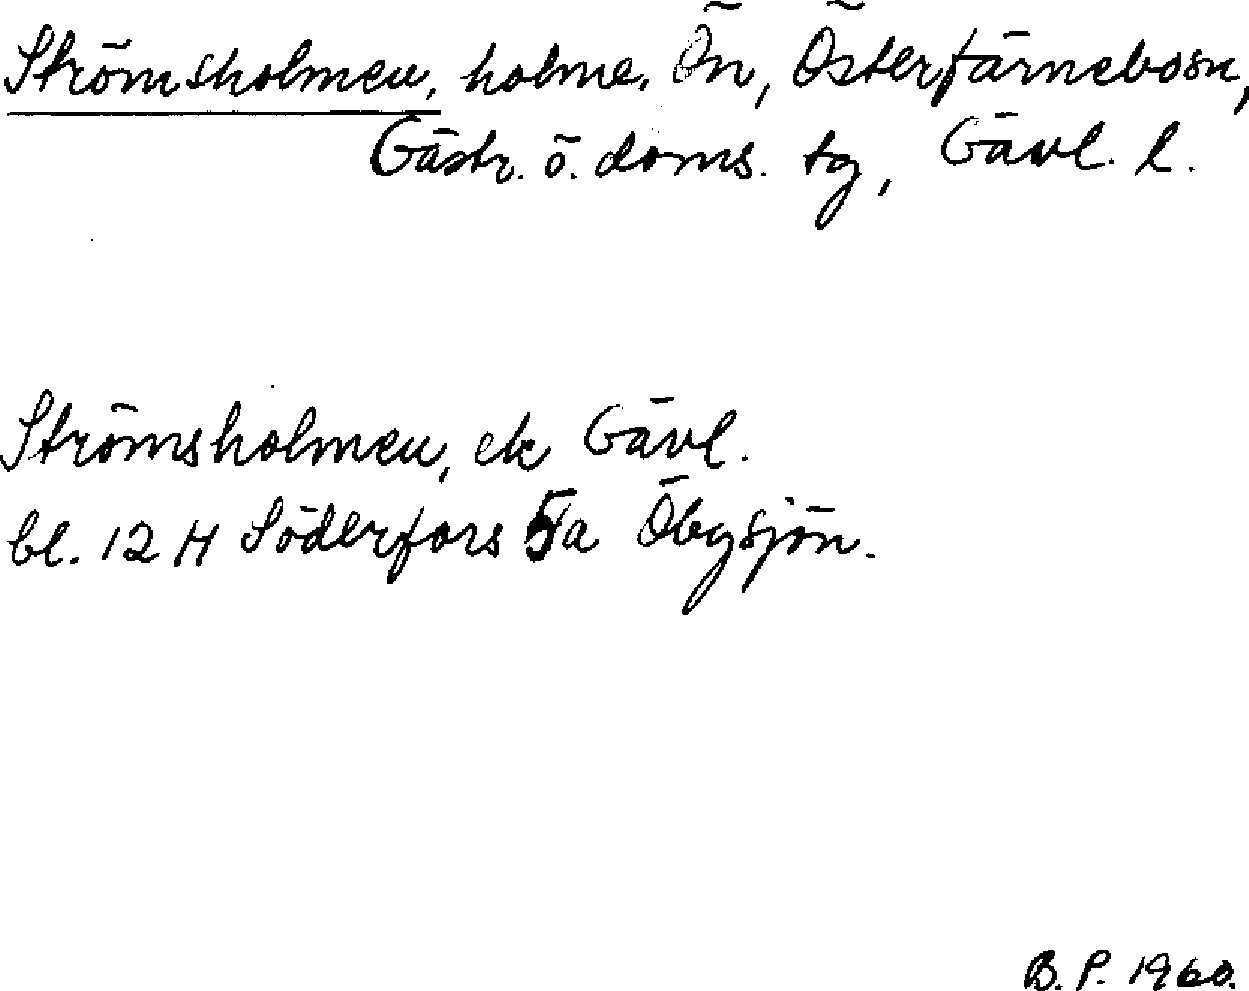 Strömsholmen, holme. Ön, Österfärnebosn,
Gästr. ö. doms. tg, Gävl. l.
Strömsholmen, ek Gävl.
bl. 12 H Söderfors 5a Öbysjön.
B. P. 1960.